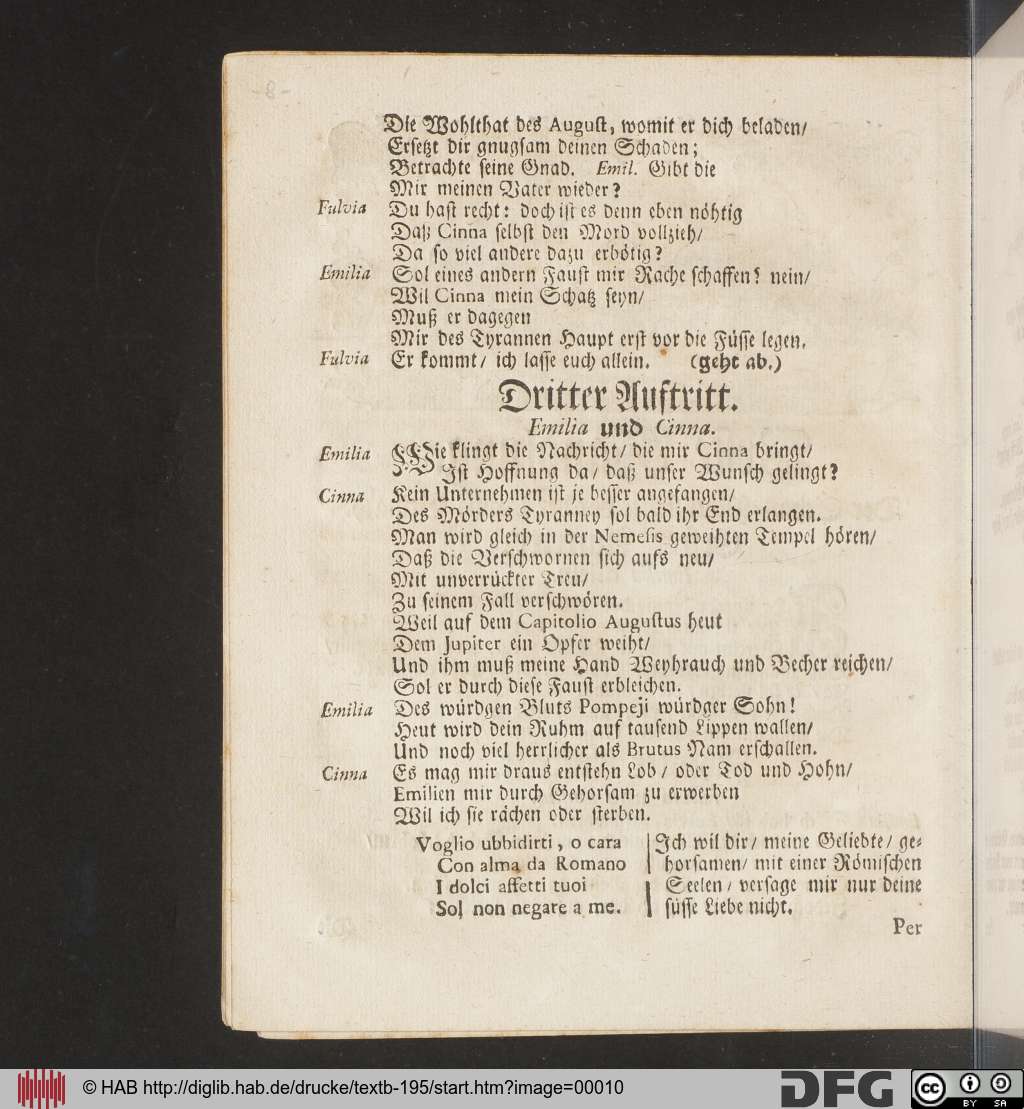 Die Wohlthat des August, womit er dich beladen/
Ersetzt dir gnugsam deinen Schaden;
Betrachte seine Gnad. Emil. Gibt die
Mir meinen Vater wieder?
Fulvia Du hast recht: doch ist es denn eben nöhtig
Daß Cinna selbst den Mord vollzieh/
Da so viel andere dazu erbötig?
Emilia Sol eines andern Faust mir Rache schaffen? nein/
Wil Cinna mein Schatz seyn/
Muß er dagegen
Mir des Tyrannen Haupt erst vor die Füsse legen.
Fulvia Er kommt/ ich lasse euch allein. (geht ab.)
Dritter Auftritt.
Emilia und Cinna.
Emilia Wie klingt die Nachricht/ die mir Cinna bringt/
Ist Hoffnung da/ daß unser Wunsch gelingt?
Cinna Kein Unternehmen ist je besser angefangen/
Des Mörders Tyranney sol bald ihr End erlangen.
Man wird gleich in der Nemesis geweihten Tempel hören/
Daß die Verschwornen sich aufs neu/
Mit unverrückter Treu/
Zu seinem Fall verschwören.
Weil auf dem Capitolio Augustus heut
Dem Jupiter ein Opfer weiht/
Und ihm muß meine Hand Weyhrauch und Becher reichen/
Sol er durch diese Faust erbleichen.
Emilia Des würdgen Bluts Pompeji würdger Sohn!
Heut wird dein Ruhm auf tausend Lippen wallen/
Und noch viel herrlicher als Brutus Nam erschallen.
Cinna Es mag mir draus entstehn Lob/ oder Tod und Hohn/
Emilien mir durch Gehorsam zu erwerben
Wil ich sie rächen oder sterben.
Voglio ubbidirti, o cara
Con alma da Romano
I dolci affetti tuoi
Sol non negare a me.
Ich wil dir/ meine Geliebte/ ge-
horsamen/ mit einer Römischen
Seelen/ versage mir nur deine
süsse Liebe nicht.
Per
© HAB http://diglib.hab.de/drucke/textb-195/start.htm?image=00010
DFG
cc
BY SA